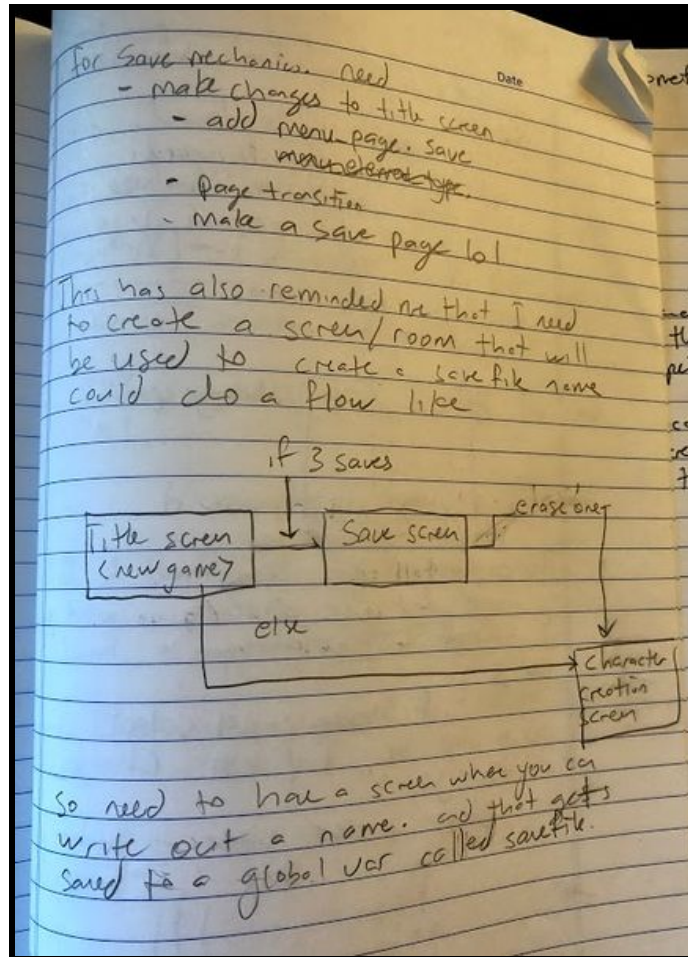 Date
For Save mechanics. need
- make changes to title screen
- add menu-page. save
- Page transition
- Make a save page lol
This has also reminded me that I need
to create a screen/room that will
be used to create a save file name
could do a flow like
if 3 saves
Title screen
<new game>
Save screen
erase one
else
character
creation
screen
So need to have a screen where you can
write out a name. and that gets
saved to a global var called savefile.